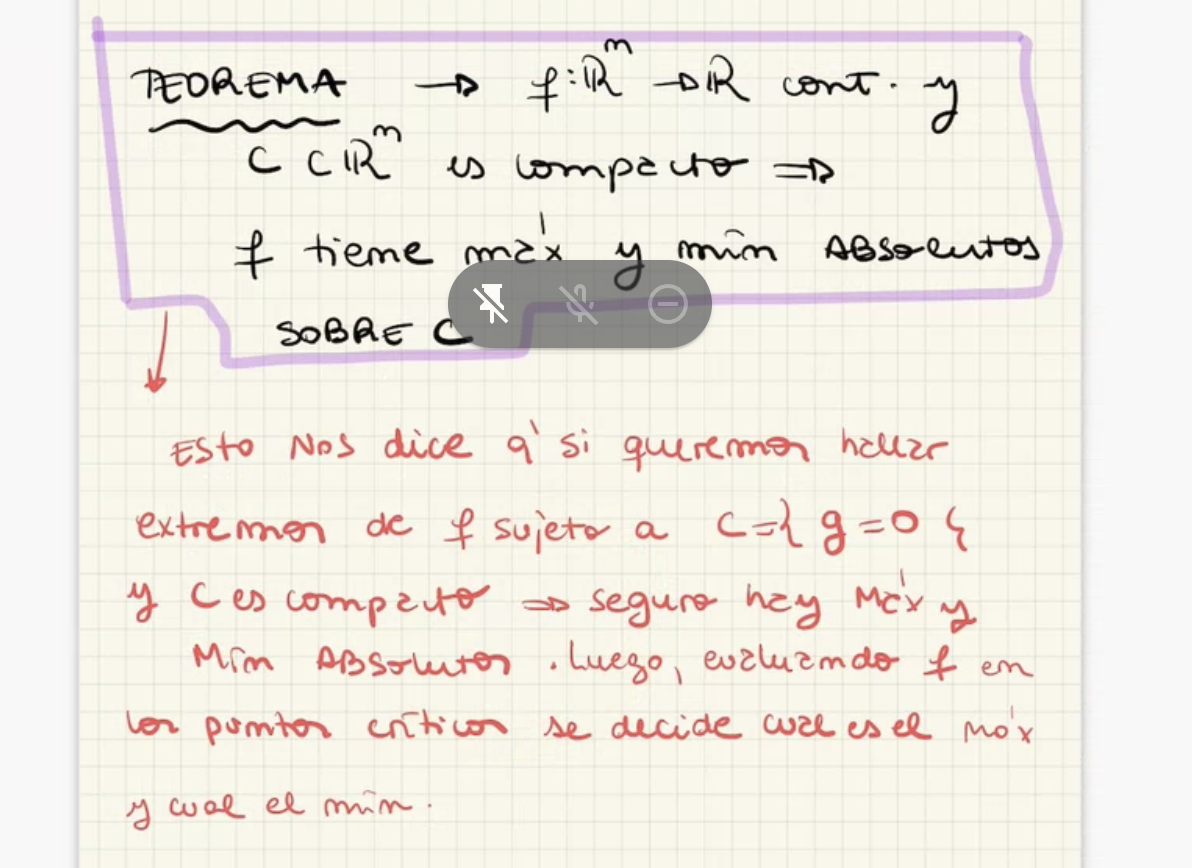 TEOREMA → f: ℝⁿ → ℝ cont. y
C ⊂ ℝⁿ es compacto ⇒
f tiene máx y mín ABSOLUTOS
SOBRE C
Esto NOS dice q' si queremos hallar
extremos de f sujeto a C={ g=0 }
y C es compacto ⇒ seguro hay Máx y
Mín ABSOLUTOS. Luego, evaluando f en
los puntos críticos se decide cual es el máx
y cual el mín.